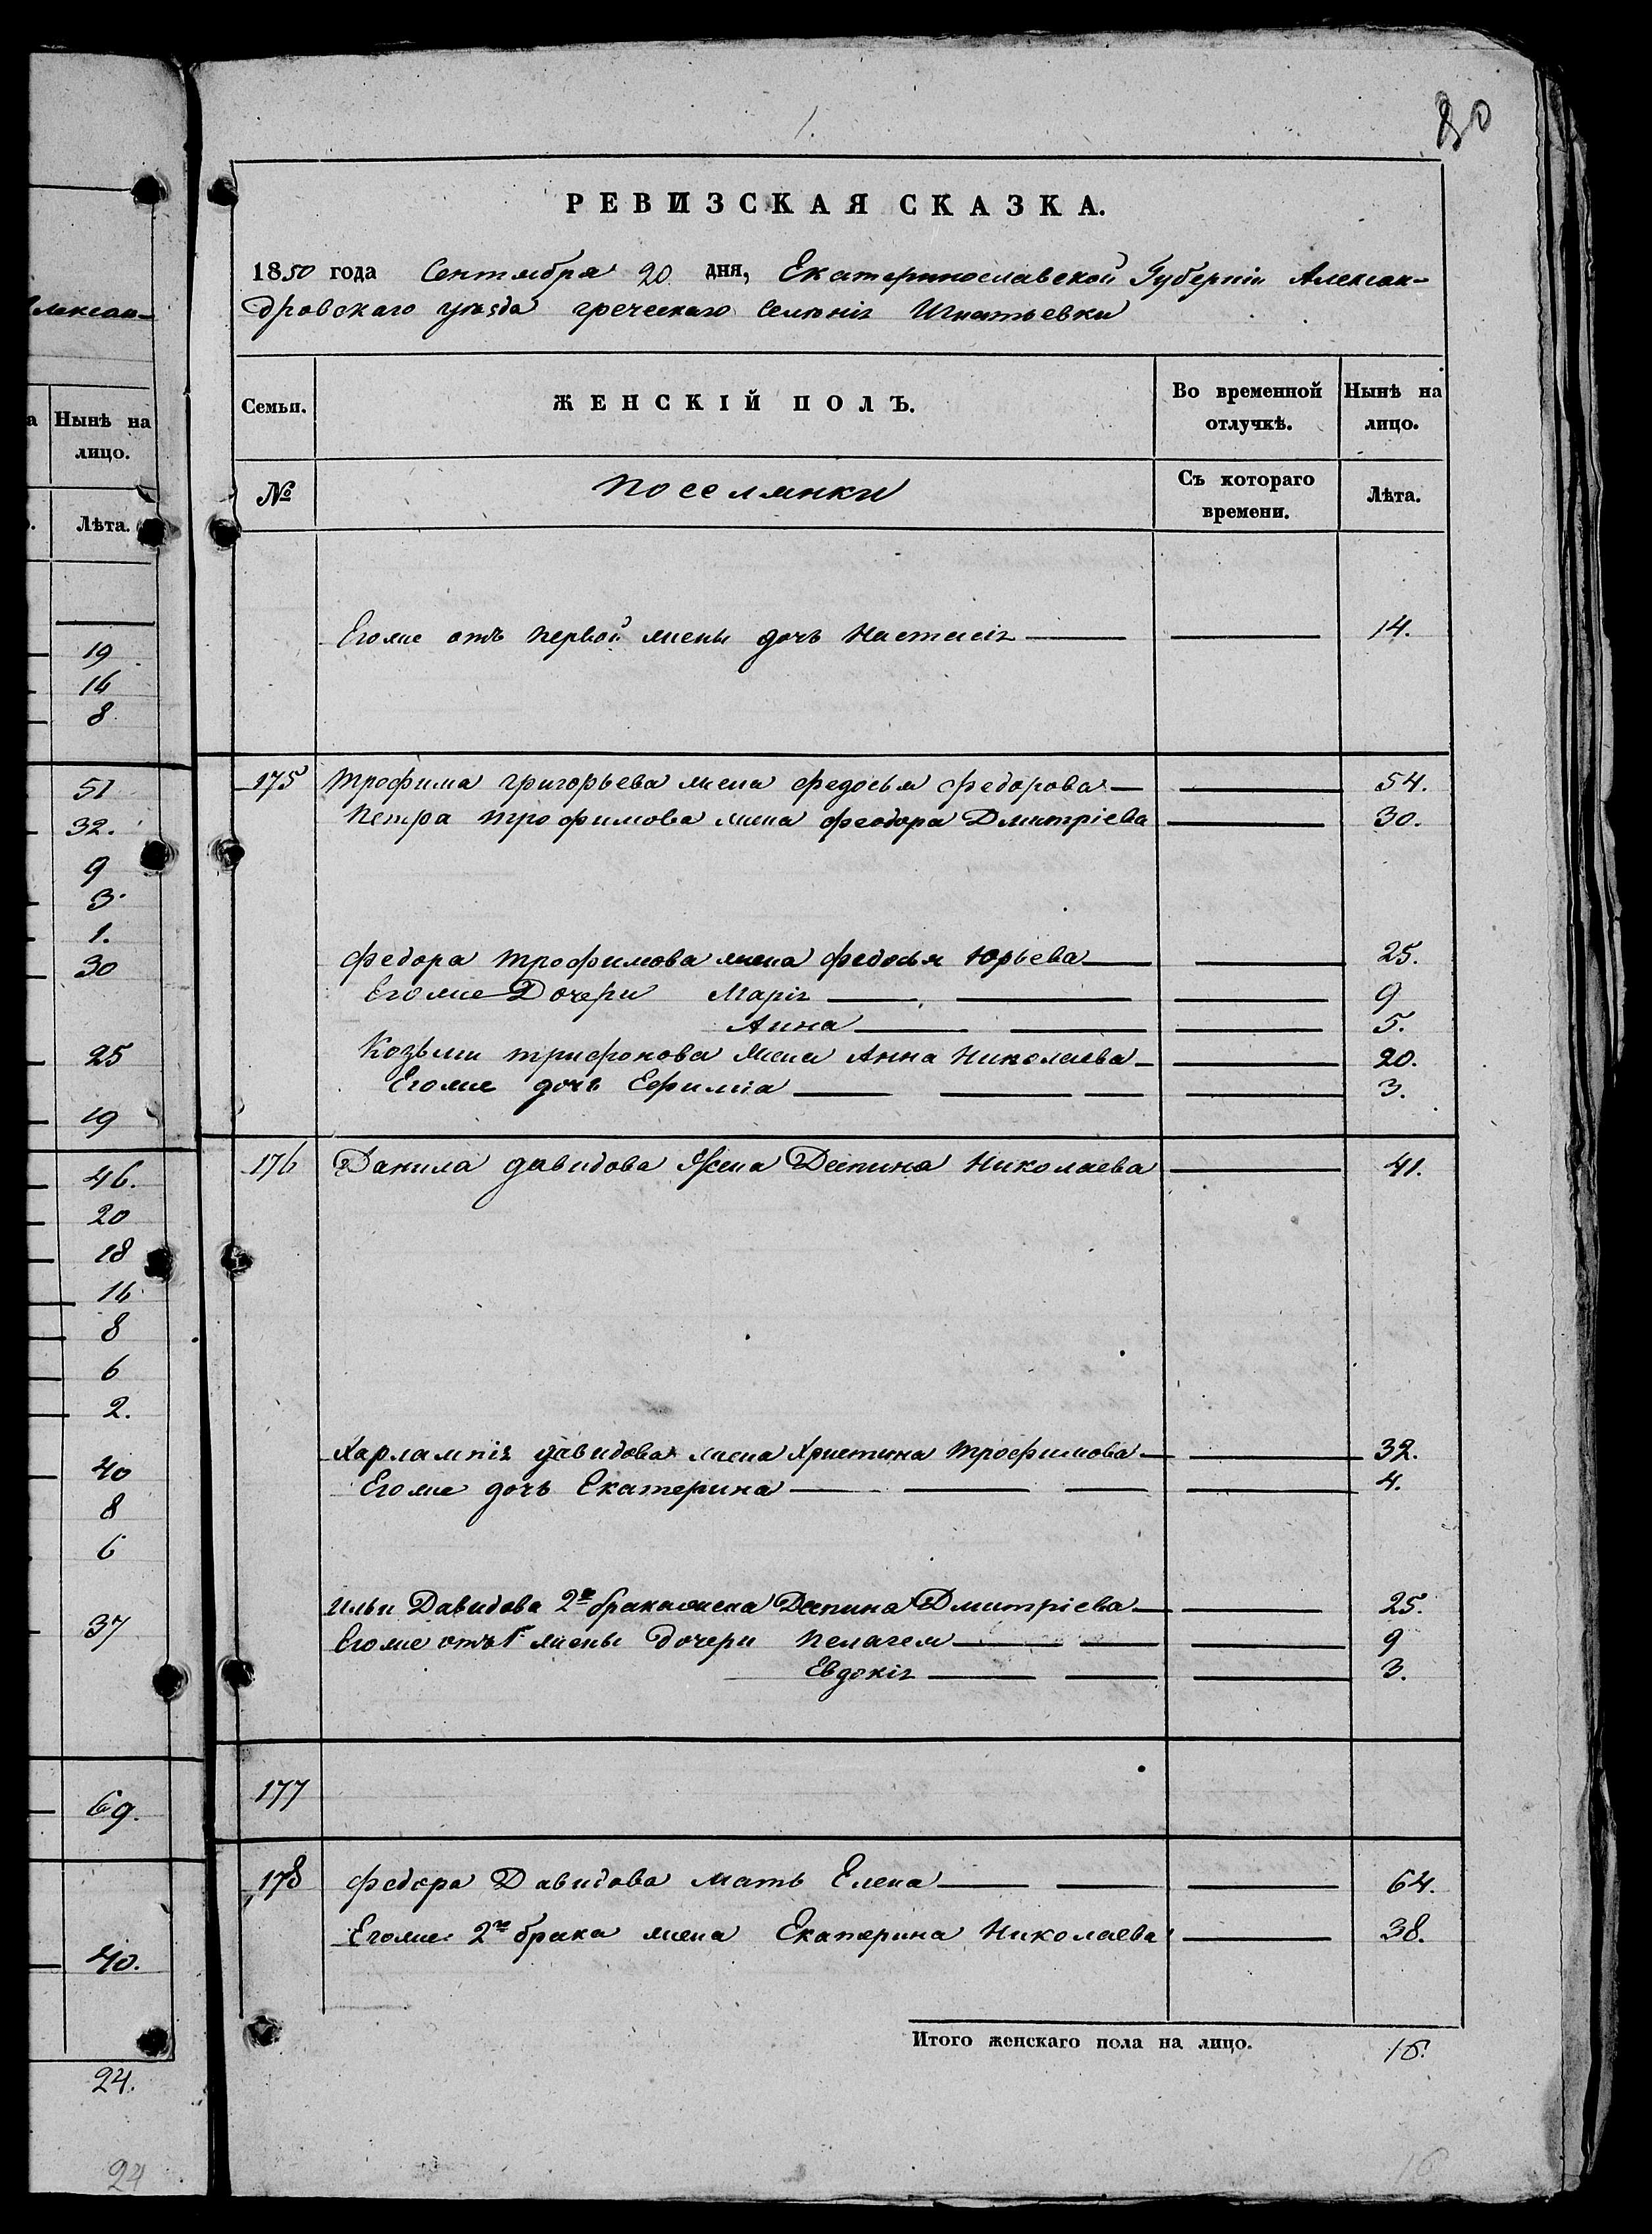 80
РЕВИЗСКАЯ СКАЗКА.
1850 года Сентября 20 дня, Екатеринославской Губерніи Алексан-
дровскаго уѣзда греческаго Селенія Игнатьевки
Семьи.
ЖЕНСКІЙ ПОЛЪ.
Во временной отлучкѣ.
Нынѣ на лицо.
№
Поселянки
Съ котораго времени.
Лѣта.
Егоже отъ первой жены дочь Настасія 14.
175 Трофима Григорьева жена Федосья Федорова 54.
Петра Трофимова жена Феодора Дмитріева 30.
Федора Трофимова жена Федосья Юрьева 25.
Егоже Дочери Марія 9
Анна 5.
Козьми Трифонова жена Анна Николаева 20.
Егоже дочь Ефимія 3.
176 Данила Давидова Жена Деспина Николаева 41.
Харлампія Давидова жена Христина Трофимова 32.
Егоже дочь Екатерина 4.
Ильи Давидова 2го брака жена Деспина Дмитріева 25.
Егоже отъ 1й жены Дочери Пелагея 9
Евдокія 3.
177
178 Федора Давидова мать Елена 64.
Егоже 2го брака жена Екатерина Николаева 38.
Итого женскаго пола на лицо. 16.
16
Алексан-
а Нынѣ на лицо.
Лѣта.
19
16
8
51
32.
9
3.
1.
30
25
19
46.
20
18
16
8
6
2.
40
8
6
37
69.
40.
24.
24